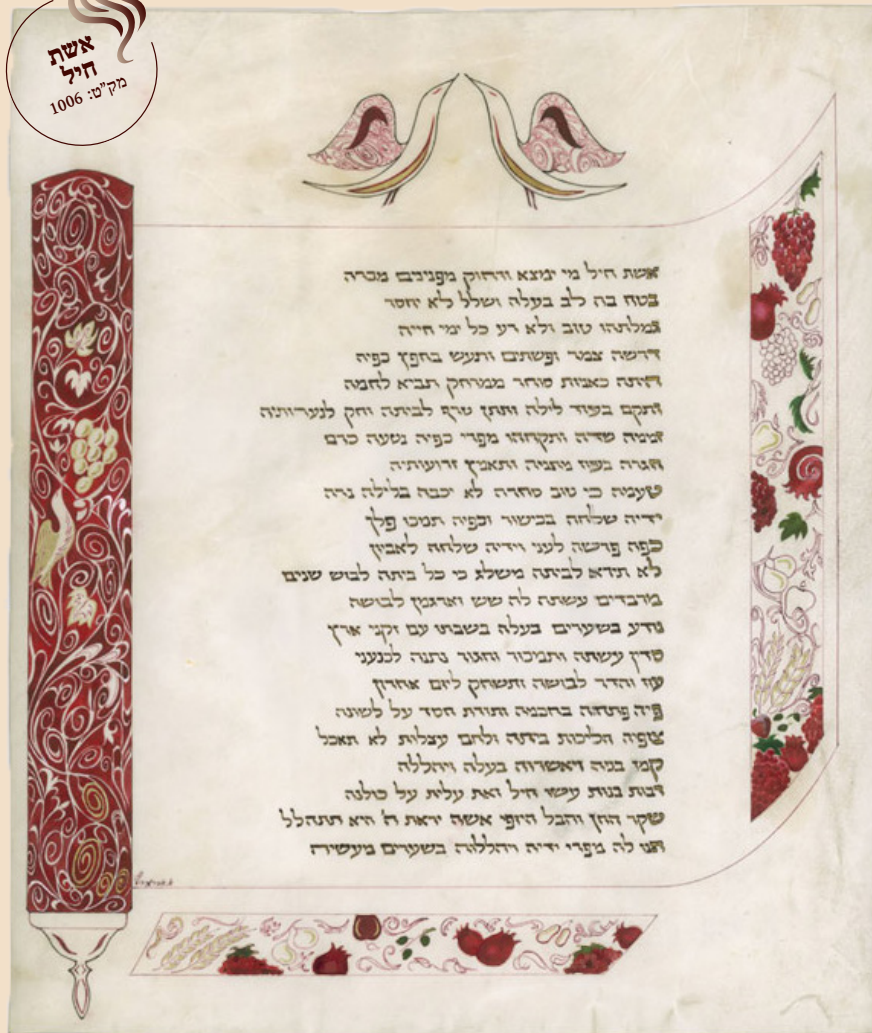 אשת
חיל
מק"ט: 1006
אשת חיל מי ימצא ורחוק מפנינים מכרה
בטח בה לב בעלה ושלל לא יחסר
גמלתהו טוב ולא רע כל ימי חייה
דרשה צמר ופשתים ותעש בחפץ כפיה
היתה כאניות סוחר ממרחק תביא לחמה
ותקם בעוד לילה ותתן טרף לביתה וחק לנערותיה
זממה שדה ותקחהו מפרי כפיה נטעה כרם
חגרה בעוז מתניה ותאמץ זרועותיה
טעמה כי טוב סחרה לא יכבה בלילה נרה
ידיה שלחה בכישור וכפיה תמכו פלך
כפה פרשה לעני וידיה שלחה לאביון
לא תירא לביתה משלג כי כל ביתה לבוש שנים
מרבדים עשתה לה שש וארגמן לבושה
נודע בשערים בעלה בשבתו עם זקני ארץ
סדין עשתה ותמכור וחגור נתנה לכנעני
עוז והדר לבושה ותשחק ליום אחרון
פיה פתחה בחכמה ותורת חסד על לשונה
צופיה הליכות ביתה ולחם עצלות לא תאכל
קמו בניה ויאשרוה בעלה ויהללה
רבות בנות עשו חיל ואת עלית על כולנה
שקר החן והבל היופי אשה יראת ה' היא תתהלל
תנו לה מפרי ידיה ויהללוה בשערים מעשיה